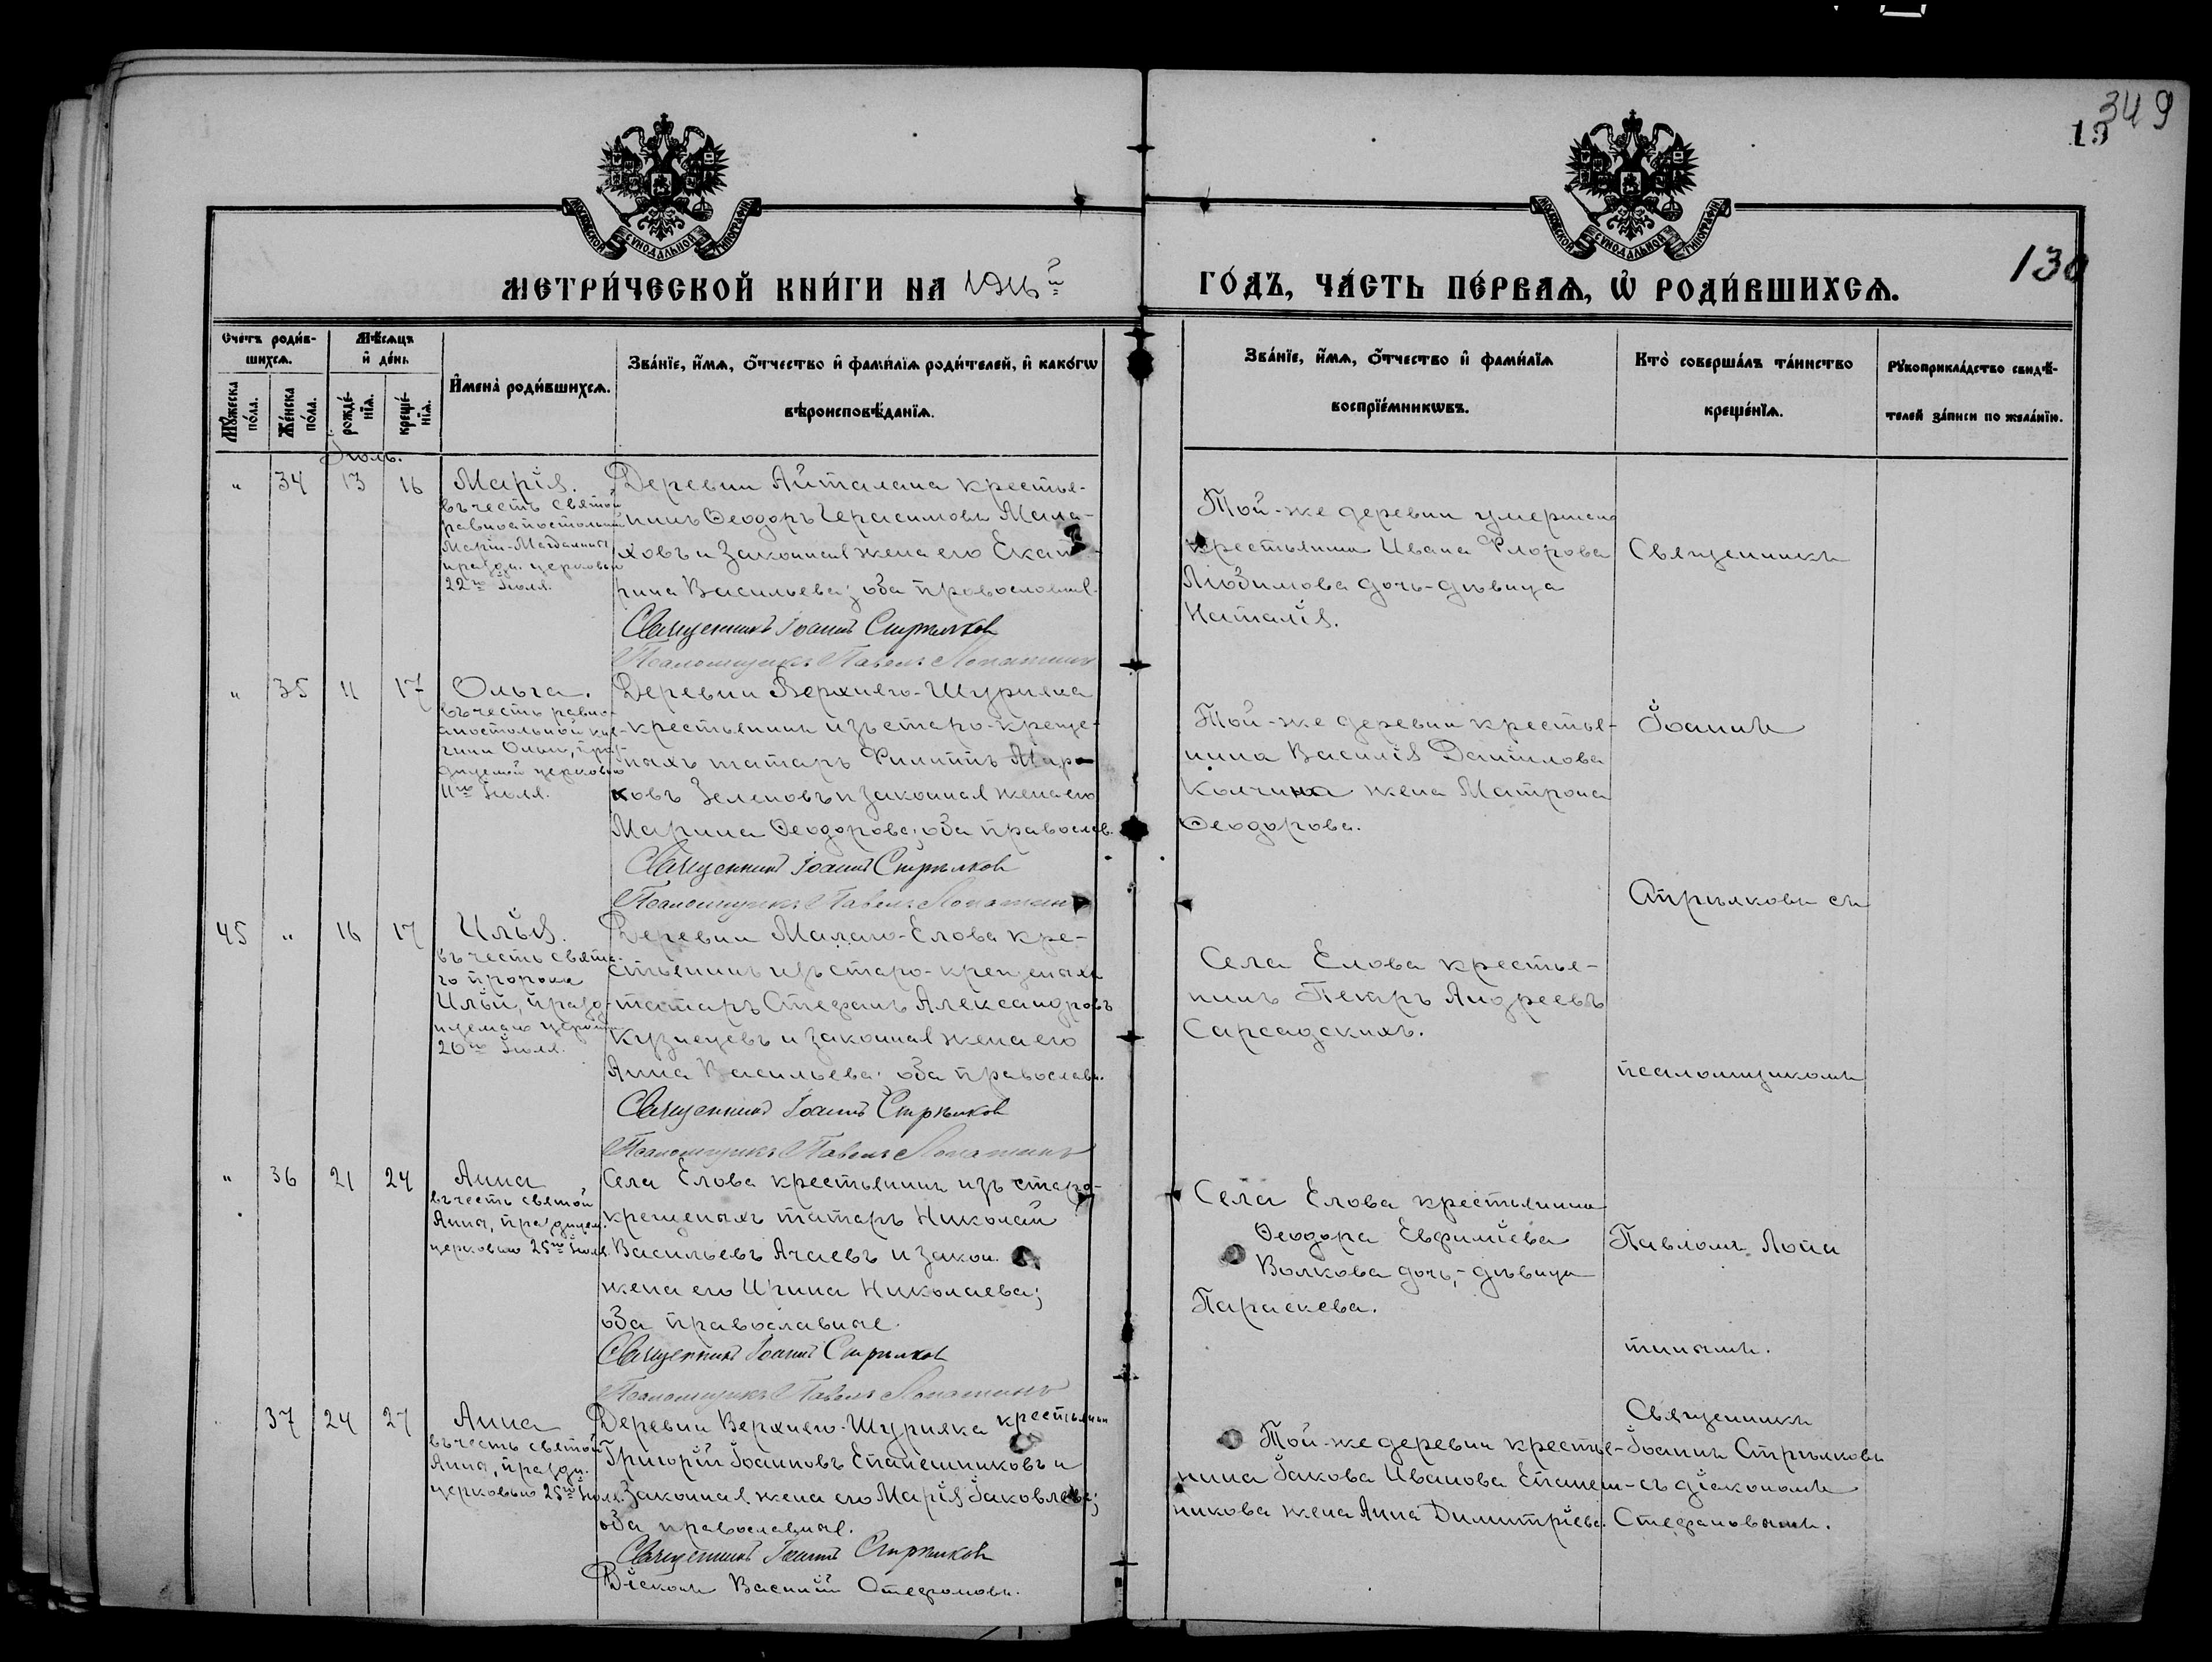 349
13
130
МОСКОВСКОЙ СѴНОДАЛЬНОЙ ТИПОГРАФІИ
МОСКОВСКОЙ СѴНОДАЛЬНОЙ ТИПОГРАФІИ
МЕТРИ́ЧЕСКОЙ КНИ́ГИ НА 1916й ГО́ДЪ, ЧА́СТЬ ПЕ́РВАѦ, Ѽ РОДИ́ВШИХСѦ.
Счетъ роди́в-
шихсѧ.
Мѣсѧцъ
и҆ де́нь.
Мꙋжеска по́ла.
Же́нска по́ла.
рожде́нїѧ.
креще́нїѧ.
И҆мена̀ роди́вшихсѧ.
Зва́нїе, и҆́мѧ, ѻ҆́тчество и҆ фами́лїѧ роди́телей, и҆ како́гѡ
вѣроисповѣ́данїѧ.
Зва́нїе, и҆́мѧ, ѻ҆́тчество и҆ фами́лїѧ
воспрїе́мникѡвъ.
Кто̀ соверша́лъ та́инство
креще́нїѧ.
Рꙋкоприкла́дство свидѣ́-
телей за́писи по жела́нїю.
Іюль.
" 34 13 16 Марія.
въ честь святой
равноапостольной
Маріи-Магдалины
праздн. церковью
22го Іюля.
Деревни Айталана крестья-
нинъ Ѳеодоръ Герасимовъ Мала-
ховъ и законная жена его Екате-
рина Васильева; оба православн.
Священникъ Іоаннъ Стрѣлковъ
Псаломщикъ Павелъ Лопатинъ
Той-же деревни умершаго
крестьянина Ивана Флорова
Любимова дочь-дѣвица
Наталія.
Священникъ
" 35 11 17 Ольга.
въ честь равно-
апостольной кня-
гини Ольги, празд-
днуемой церковью
11го Іюля.
Деревни Верхняго-Шуряка
крестьянинъ изъ старо-креще-
ныхъ татаръ Филиппъ Мар-
ковъ Зеленовъ и законная жена его
Марина Ѳеодорова; оба православ.
Священникъ Іоаннъ Стрѣлковъ
Псаломщикъ Павелъ Лопатинъ
Той-же деревни крестья-
нина Василія Даніилова
Колчина жена Матрона
Ѳеодорова.
Іоаннъ
Стрѣлковъ съ
45 " 16 17 Илья.
въ честь свята-
го пророка
Иліи, празд-
нуемаго церков.
20го Іюля.
Деревни Малаго-Елова кре-
стьянинъ изъ старо-крещеныхъ
татаръ Стефанъ Александровъ
Кузнецовъ и законная жена его
Анна Васильева; оба православн.
Священникъ Іоаннъ Стрѣлковъ
Псаломщикъ Павелъ Лопатинъ
Села Елова крестья-
нинъ Петръ Андреевъ
Сарсадскихъ.
псаломщикомъ
" 36 21 24 Анна
въ честь святой
Анны, празднуем.
церковью 25го Іюля.
Села Елова крестьянинъ изъ старо-
крещеныхъ татаръ Николай
Васильевъ Ачаевъ и закон.
жена его Ирина Николаева;
оба православные.
Священникъ Іоаннъ Стрѣлковъ
Псаломщикъ Павелъ Лопатинъ
Села Елова крестьянина
Ѳеодора Евфиміева
Волкова дочь,-дѣвица
Параскева.
Павломъ Лопа
тинымъ.
37 24 27 Анна
въ честь святой
Анны, праздн.
церковью 25го Іюля.
Деревни Верхняго-Шуряка крестьянин
Григорій Іоанновъ Епанешниковъ и
законная жена его Марія Іаковлева;
оба православные.
Священникъ Іоаннъ Стрѣлковъ
Діаконъ Василій Стефановъ.
Той-же деревни крестья-
нина Іакова Иванова Епанеш-
никова жена Анна Димитріева.
Священникъ
Іоаннъ Стрѣлковъ
съ діакономъ
Стефановымъ.